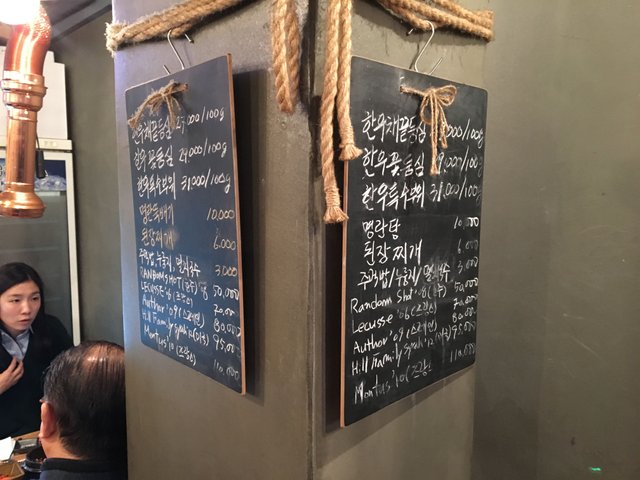 한우채끝등심 27,000/100g
한우 꽃등심 29,000/100g
한우특수부위 31,000/100g
명란뚝배기 10,000
된장찌개 6,000
주먹밥/누룽지/멸치국수 3,000
RANDOM SHOT 50,000
LECUSSE '06 70,000
Author '09 (스페인) 80,000
Hill Family 95,000
Montus '10 110,000
한우채끝등심 000/100g
한우꽃등심 9,000/100g
한우특수부위 31,000/100g
명란탕 10,000
된장찌개 6,000
주먹밥/누룽지/멸치국수 3,000
Random Shot 50,000
Lecusse '06 70,000
Author '09 (스페인) 80,000
Hill Family 95,000
Montus '10 110,000